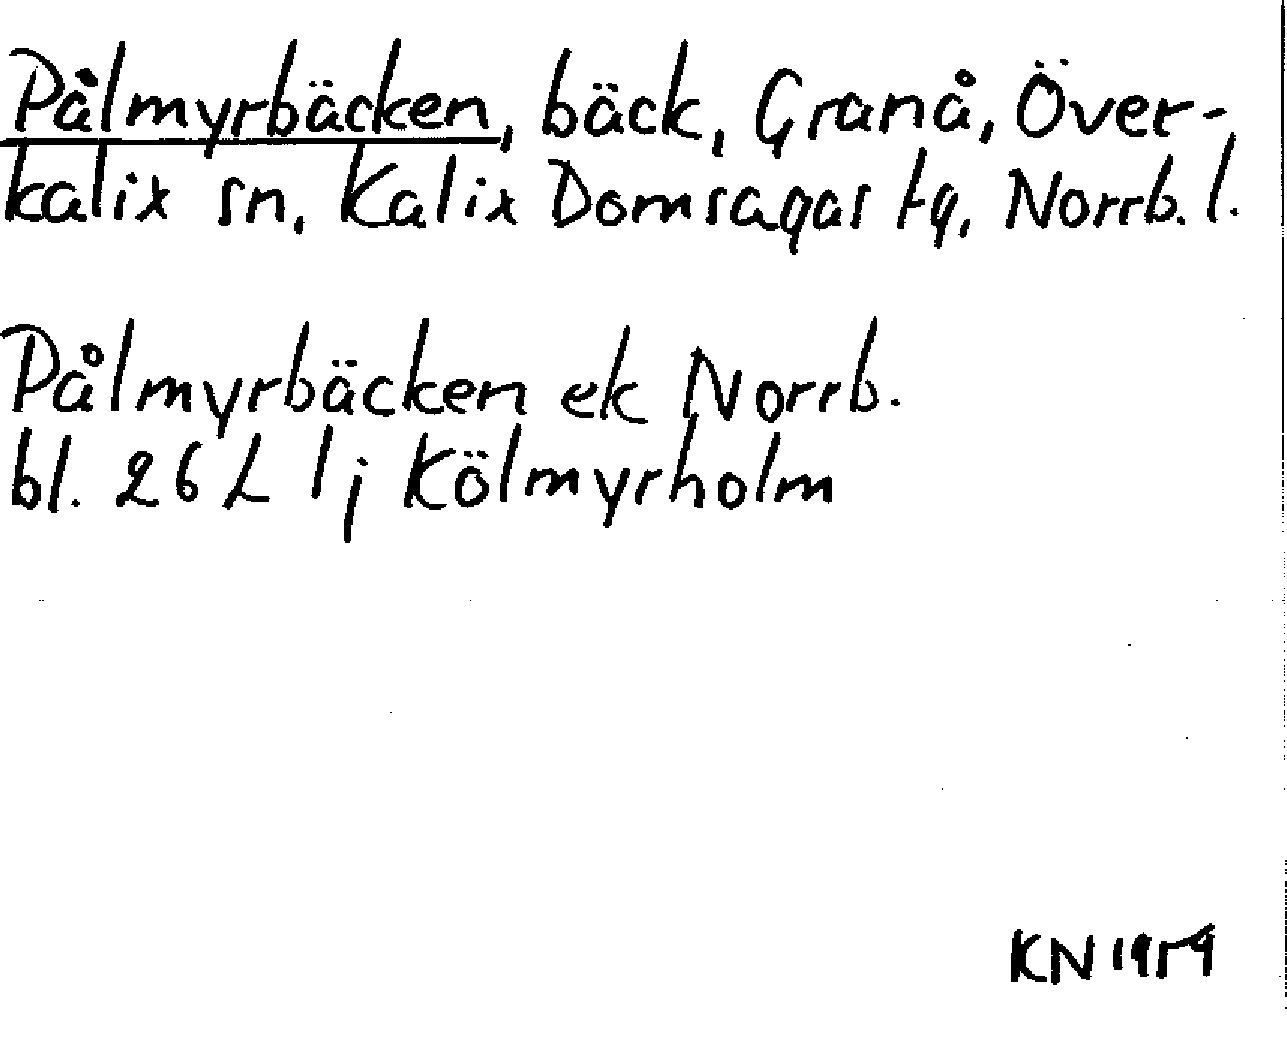 Pålmyrbäcken, bäck, Granå, Över-
kalix sn, Kalix Domsagas tg, Norrb. l.
Pålmyrbäcken ek Norrb.
bl. 26 L l j Kölmyrholm
KN 1959